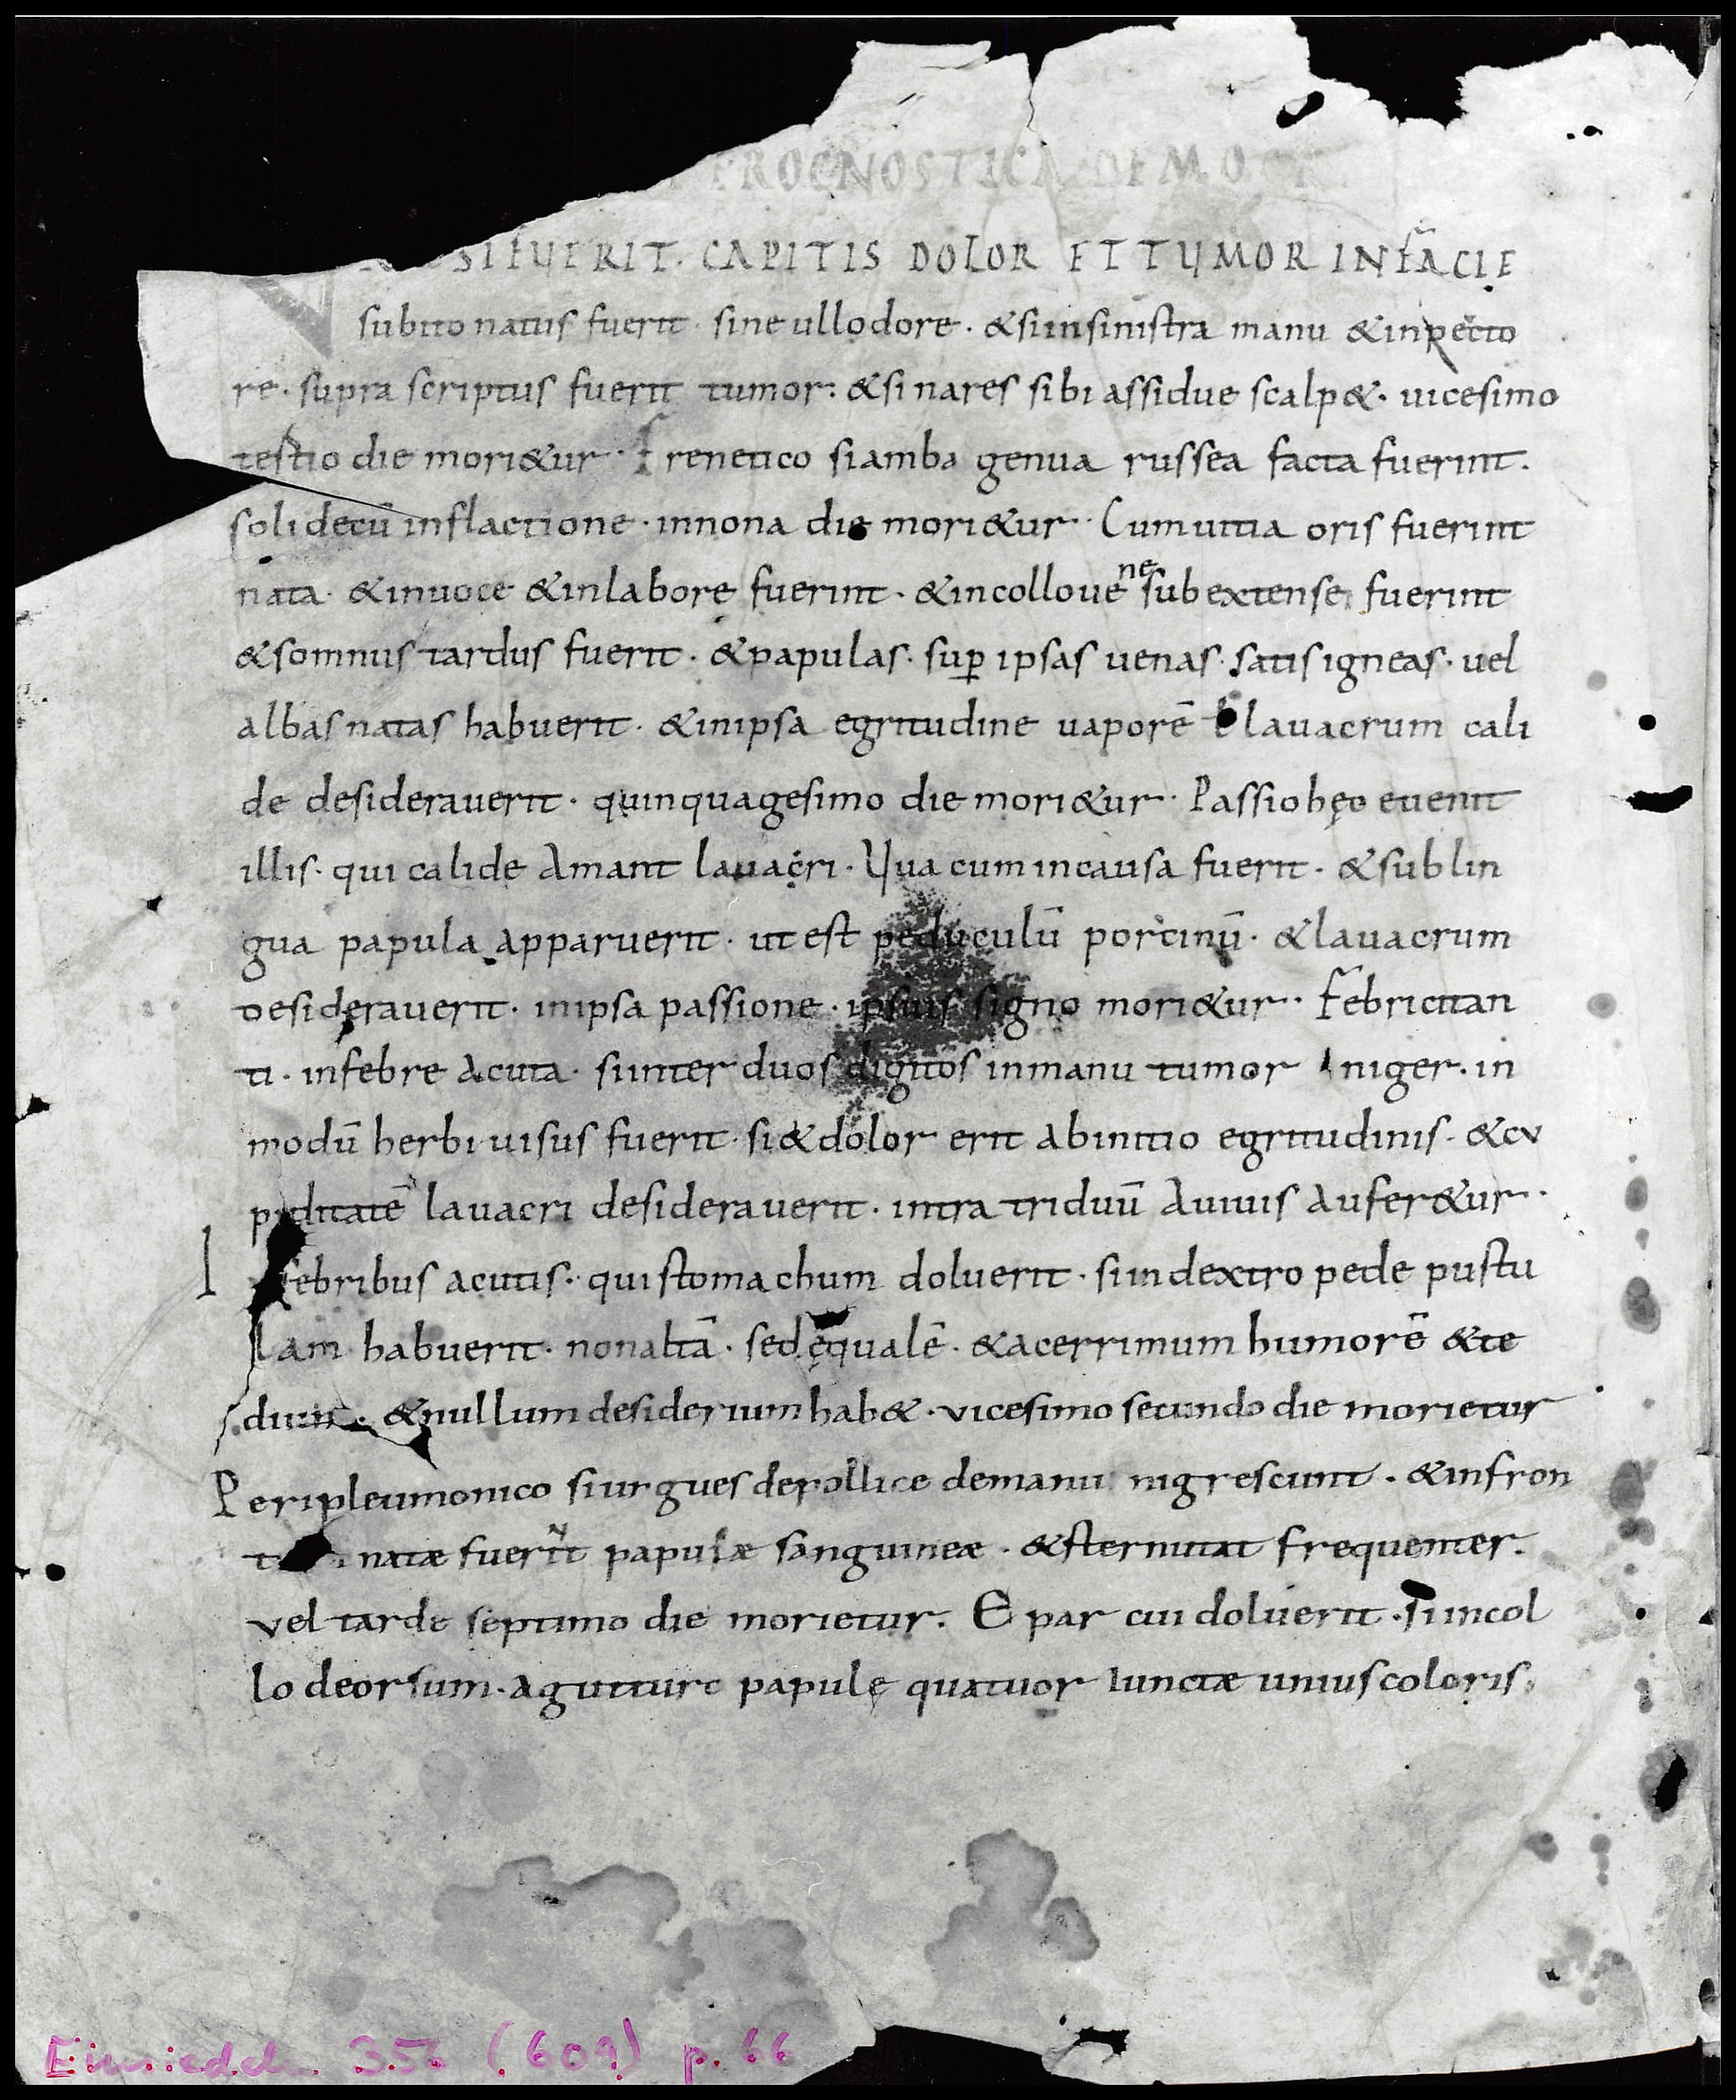 PROGNOSTICA DEMO
SI FUERIT · CAPITIS DOLOR ET TUMOR IN FACIE
subito natus fuerit · sine ullo dore · & si in sinistra manu & in pecto
re · supra scriptus fuerit tumor · & si nares sibi assidue scalp& · uicesimo
tertio die mori&ur · Frenetico si amba genua russea facta fuerint ·
solide cū inflactione · in nona die mori&ur · Cum uitia oris fuerint
nata · & in uoce & in labore fuerint · & in collo uene sub extense fuerint
& somnus tardus fuerit · & papulas · sup ipsas uenas · satis igneas · uel
albas natas habuerit · & in ipsa egritudine uaporē ł lauacrum cali
de desiderauerit · quinquagesimo die mori&ur · Passio hęc euenit
illis · qui calide amant lauacri · Qua cum in causa fuerit · & sub lin
gua papula apparuerit · ut est peduculū porcinū · & lauacrum
desiderauerit · in ipsa passione · ipsius signo mori&ur · Febricitan
ti · in febre acuta · si inter duos digitos in manu tumor niger · in
modū herbi uisus fuerit · si & dolor erit ab initio egritudinis · & cu
piditatē lauacri desiderauerit · intra triduū a uiuis aufer&ur ·
I febribus acutis · qui stomachum doluerit · si in dextro pede pustu
lam habuerit · non altā · sed ęqualē · & acerrimum humorē & te
dium · & nullum desiderium hab& · vicesimo secundo die morietur
Peripleumonico si urgues de pollice de manu nigrescunt · & in fron
natæ fuerint papulæ sanguineæ · & sternutat frequenter ·
vel tarde septimo die morietur. Epar cui doluerit · si in col
lo deorsum · a gutture papulę quatuor iunctæ unius coloris ·
Einsiedeln 356 (609) p. 66